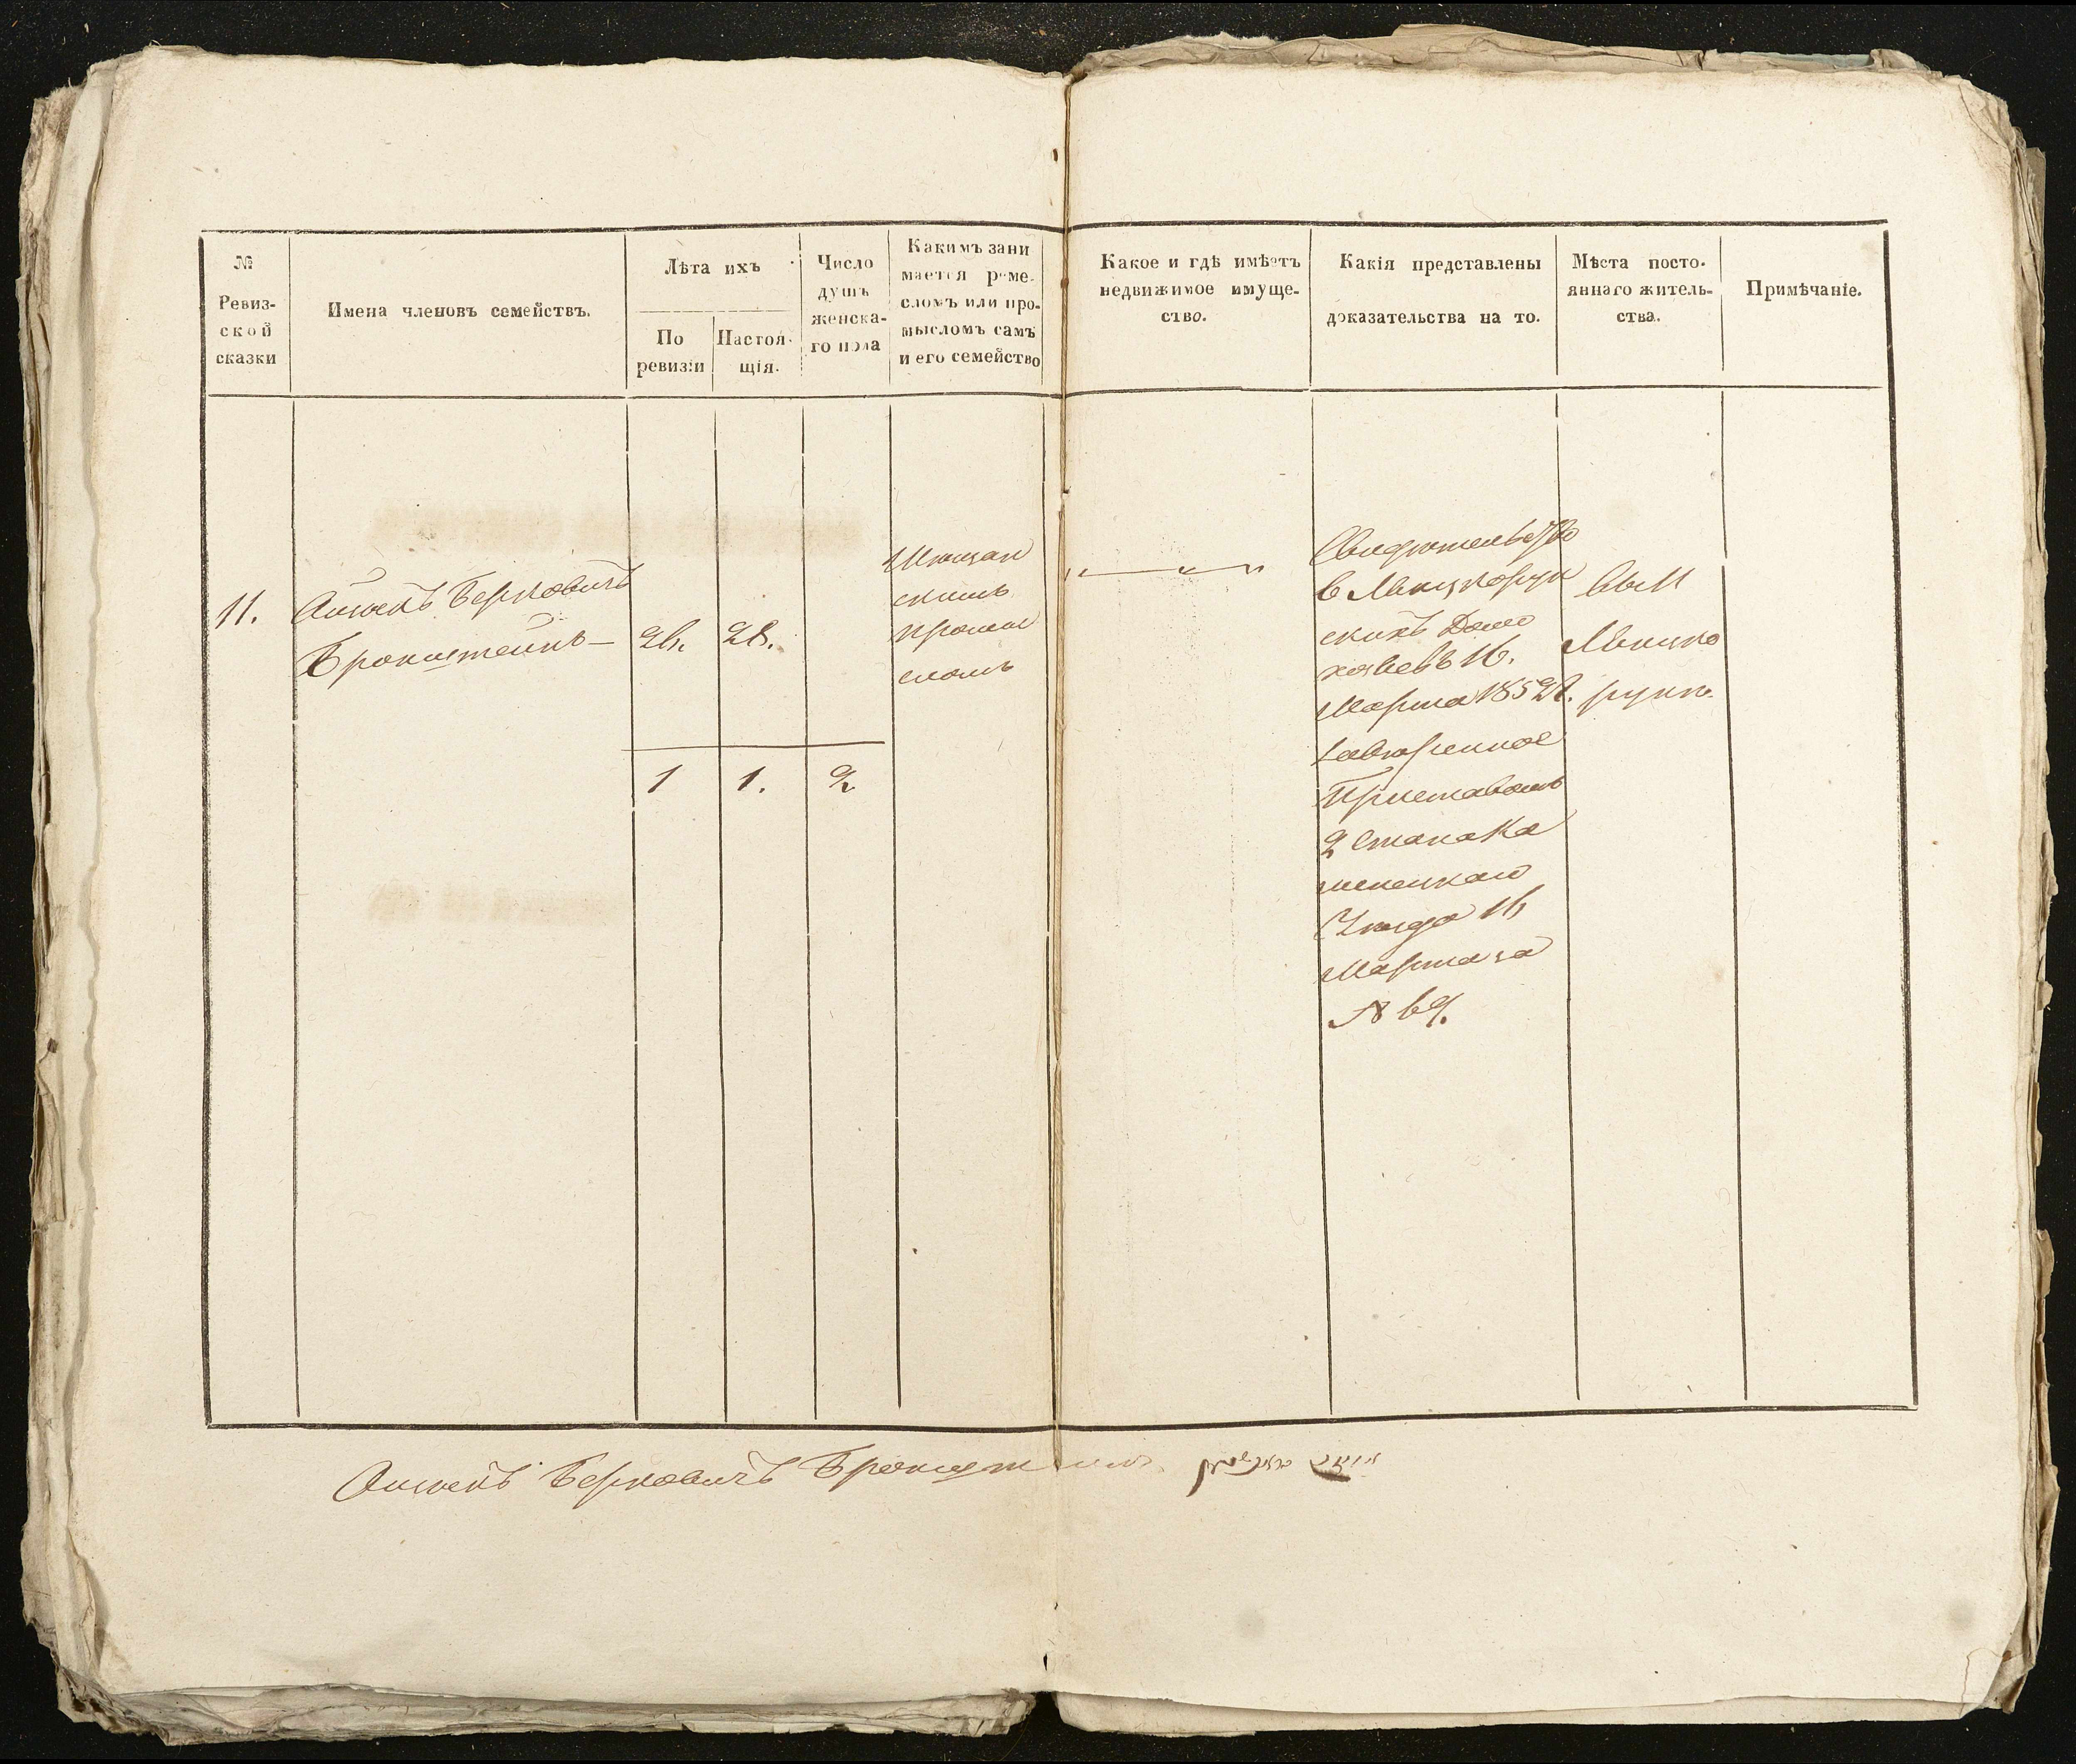 №
Ревиз-
ской
сказки
Имена членовъ семействъ.
Лѣта ихъ
По
ревизіи
Настоя-
щія.
Число
душъ
женска-
го пола
Какимъ зани
мается реме-
сломъ или про-
мысломъ самъ
и его семейство
Какое и гдѣ имѣетъ
недвижимое имуще-
ство.
Какія представлены
доказательства на то.
Мѣста посто-
яннаго житель-
ства.
Примѣчаніе.
11.
Берковичъ
Бронштейнъ —
26.
28.
Мѣщан
скимъ
промы
сломъ
1
1.
2
Свидѣтельство
скихъ Домо
хозяевъ 16.
Марта 1852 г.
завѣренное
Приставомъ
2 Стана Ка
менецкаго
Уѣзда 16
Марта за
№ 69.
Берковичъ Бронштейнъ